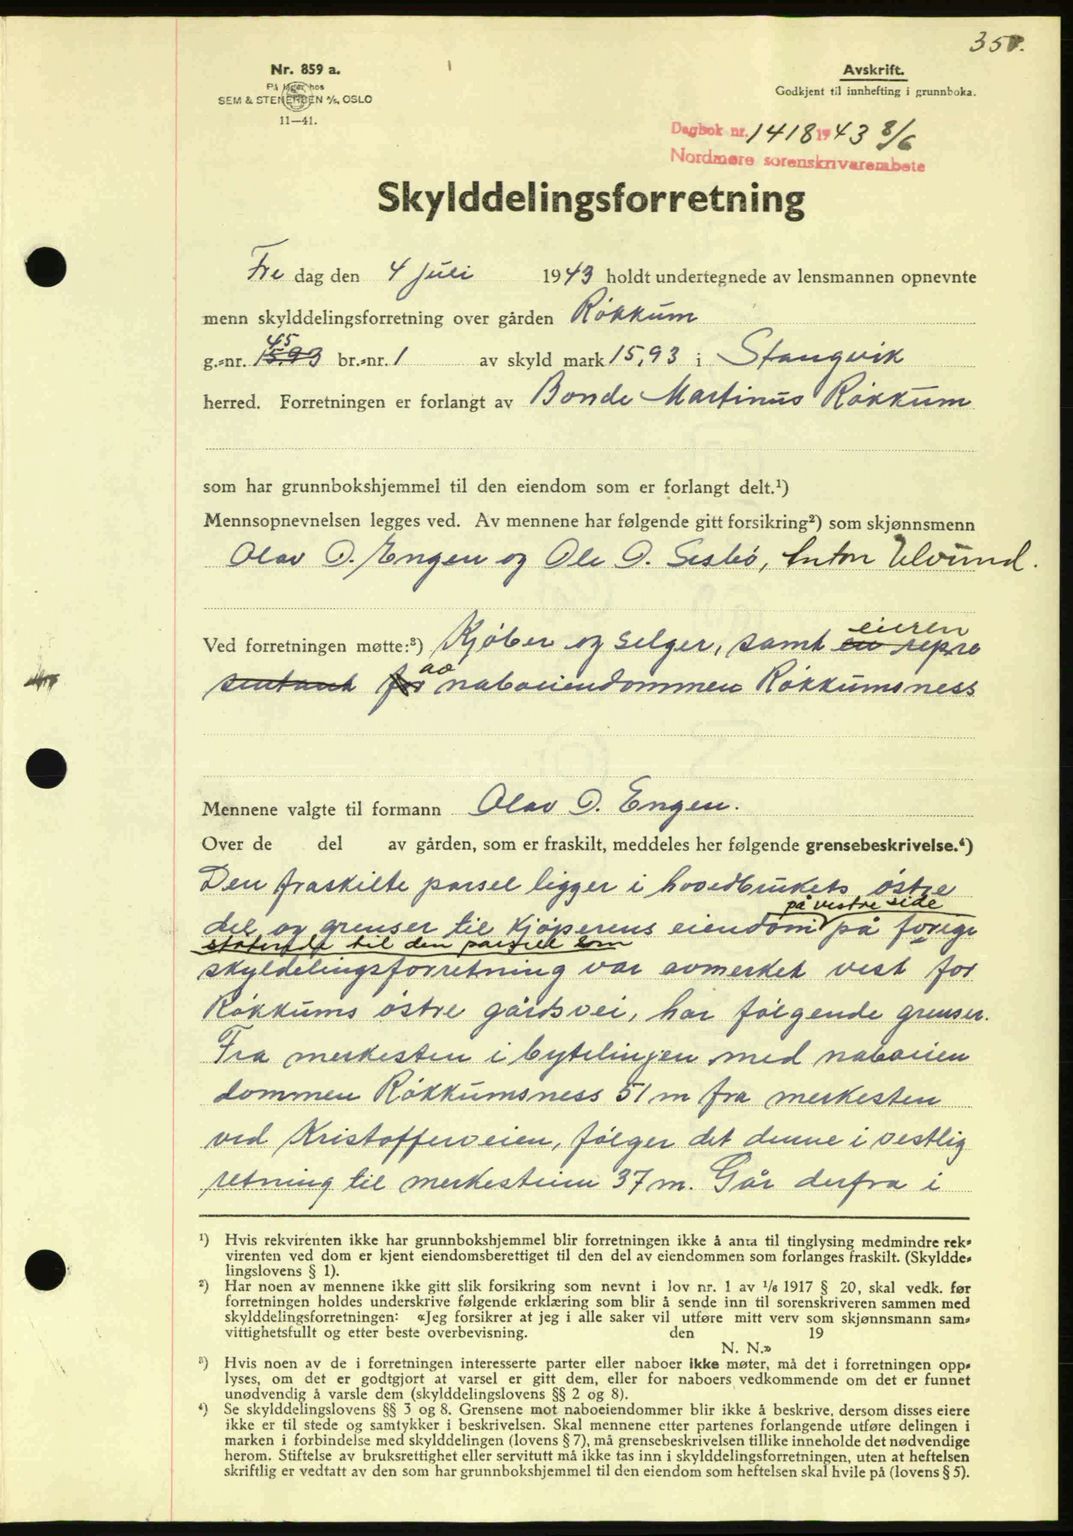 358.
Nr. 859 a.
På lager hos
SEM & STENERSEN A/S, OSLO
11—41.
Avskrift.
Godkjent til innhefting i grunnboka.
Dagbok nr. 1418 1943 8/6
Nordmøre sorenskrivarembete
Skylddelingsforretning
Fre dag den 4 juli 1943 holdt undertegnede av lensmannen opnevnte
menn skylddelingsforretning over gården Røkkum
45
g.-nr. 15,93 br.-nr. 1 av skyld mark 15,93 i Stangvik
herred. Forretningen er forlangt av Bonde Martinus Røkkum
som har grunnbokshjemmel til den eiendom som er forlangt delt.¹)
Mennsopnevnelsen legges ved. Av mennene har følgende gitt forsikring²) som skjønnsmenn
Olav O. Engen og Ole O. Sesbø, Anton Ulvund.
eieren
Ved forretningen møtte:³) Kjøber og selger, samt en repre
av
sentant for naboeiendommen Røkkumsness
Mennene valgte til formann Olav O. Engen.
Over de del av gården, som er fraskilt, meddeles her følgende grensebeskrivelse.⁴)
Den fraskilte parsel ligger i hovedbrukets østre
på vestre side
del og grenser til kjøperens eiendom på forrige
støtende til den parsell som
skyldelingsforretning var avmerket vest for
Røkkums østre gårdsvei, har følgende grenser.
Fra merkesten i bytelinjen med naboeien
dommen Røkkumsness 51 m fra merkesten
ved Kristofferveien, følger det denne i vestlig
retning til merkesteinen 37 m. Går derfra i
¹) Hvis rekvirenten ikke har grunnbokshjemmel blir forretningen ikke å anta til tinglysing medmindre rek-
virenten ved dom er kjent eiendomsberettiget til den del av eiendommen som forlanges fraskilt. (Skyldde-
lingslovens § 1).
²) Har noen av mennene ikke gitt slik forsikring som nevnt i lov nr. 1 av 1/6 1917 § 20, skal vedk. før
forretningen holdes underskrive følgende erklæring som blir å sende inn til sorenskriveren sammen med
skylddelingsforretningen: «Jeg forsikrer at jeg i alle saker vil utføre mitt verv som skjønnsmann sam-
vittighetsfullt og etter beste overbevisning. den 19
N. N.»
³) Hvis noen av de i forretningen interesserte parter eller naboer ikke møter, må det i forretningen opp-
lyses, om det er godtgjort at varsel er gitt dem, eller for naboers vedkommende om det er funnet
unødvendig å varsle dem (skylddelingslovens §§ 2 og 8).
⁴) Se skylddelingslovens §§ 3 og 8. Grensene mot naboeiendommer blir ikke å beskrive, dersom disses eiere
ikke er til stede og samtykker i beskrivelsen. Skal mennene etter partenes forlangende utføre delingen i
marken i forbindelse med skylddelingen (lovens § 7), må grensebeskrivelsen tillike inneholde det nødvendige
herom. Stiftelse av bruksrettighet eller servitutt må ikke tas inn i skylddelingsforretningen, uten at heftelsen
skriftlig er vedtatt av den som har grunnbokshjemmel til den eiendom som heftelsen skal hvile på (lovens § 5).